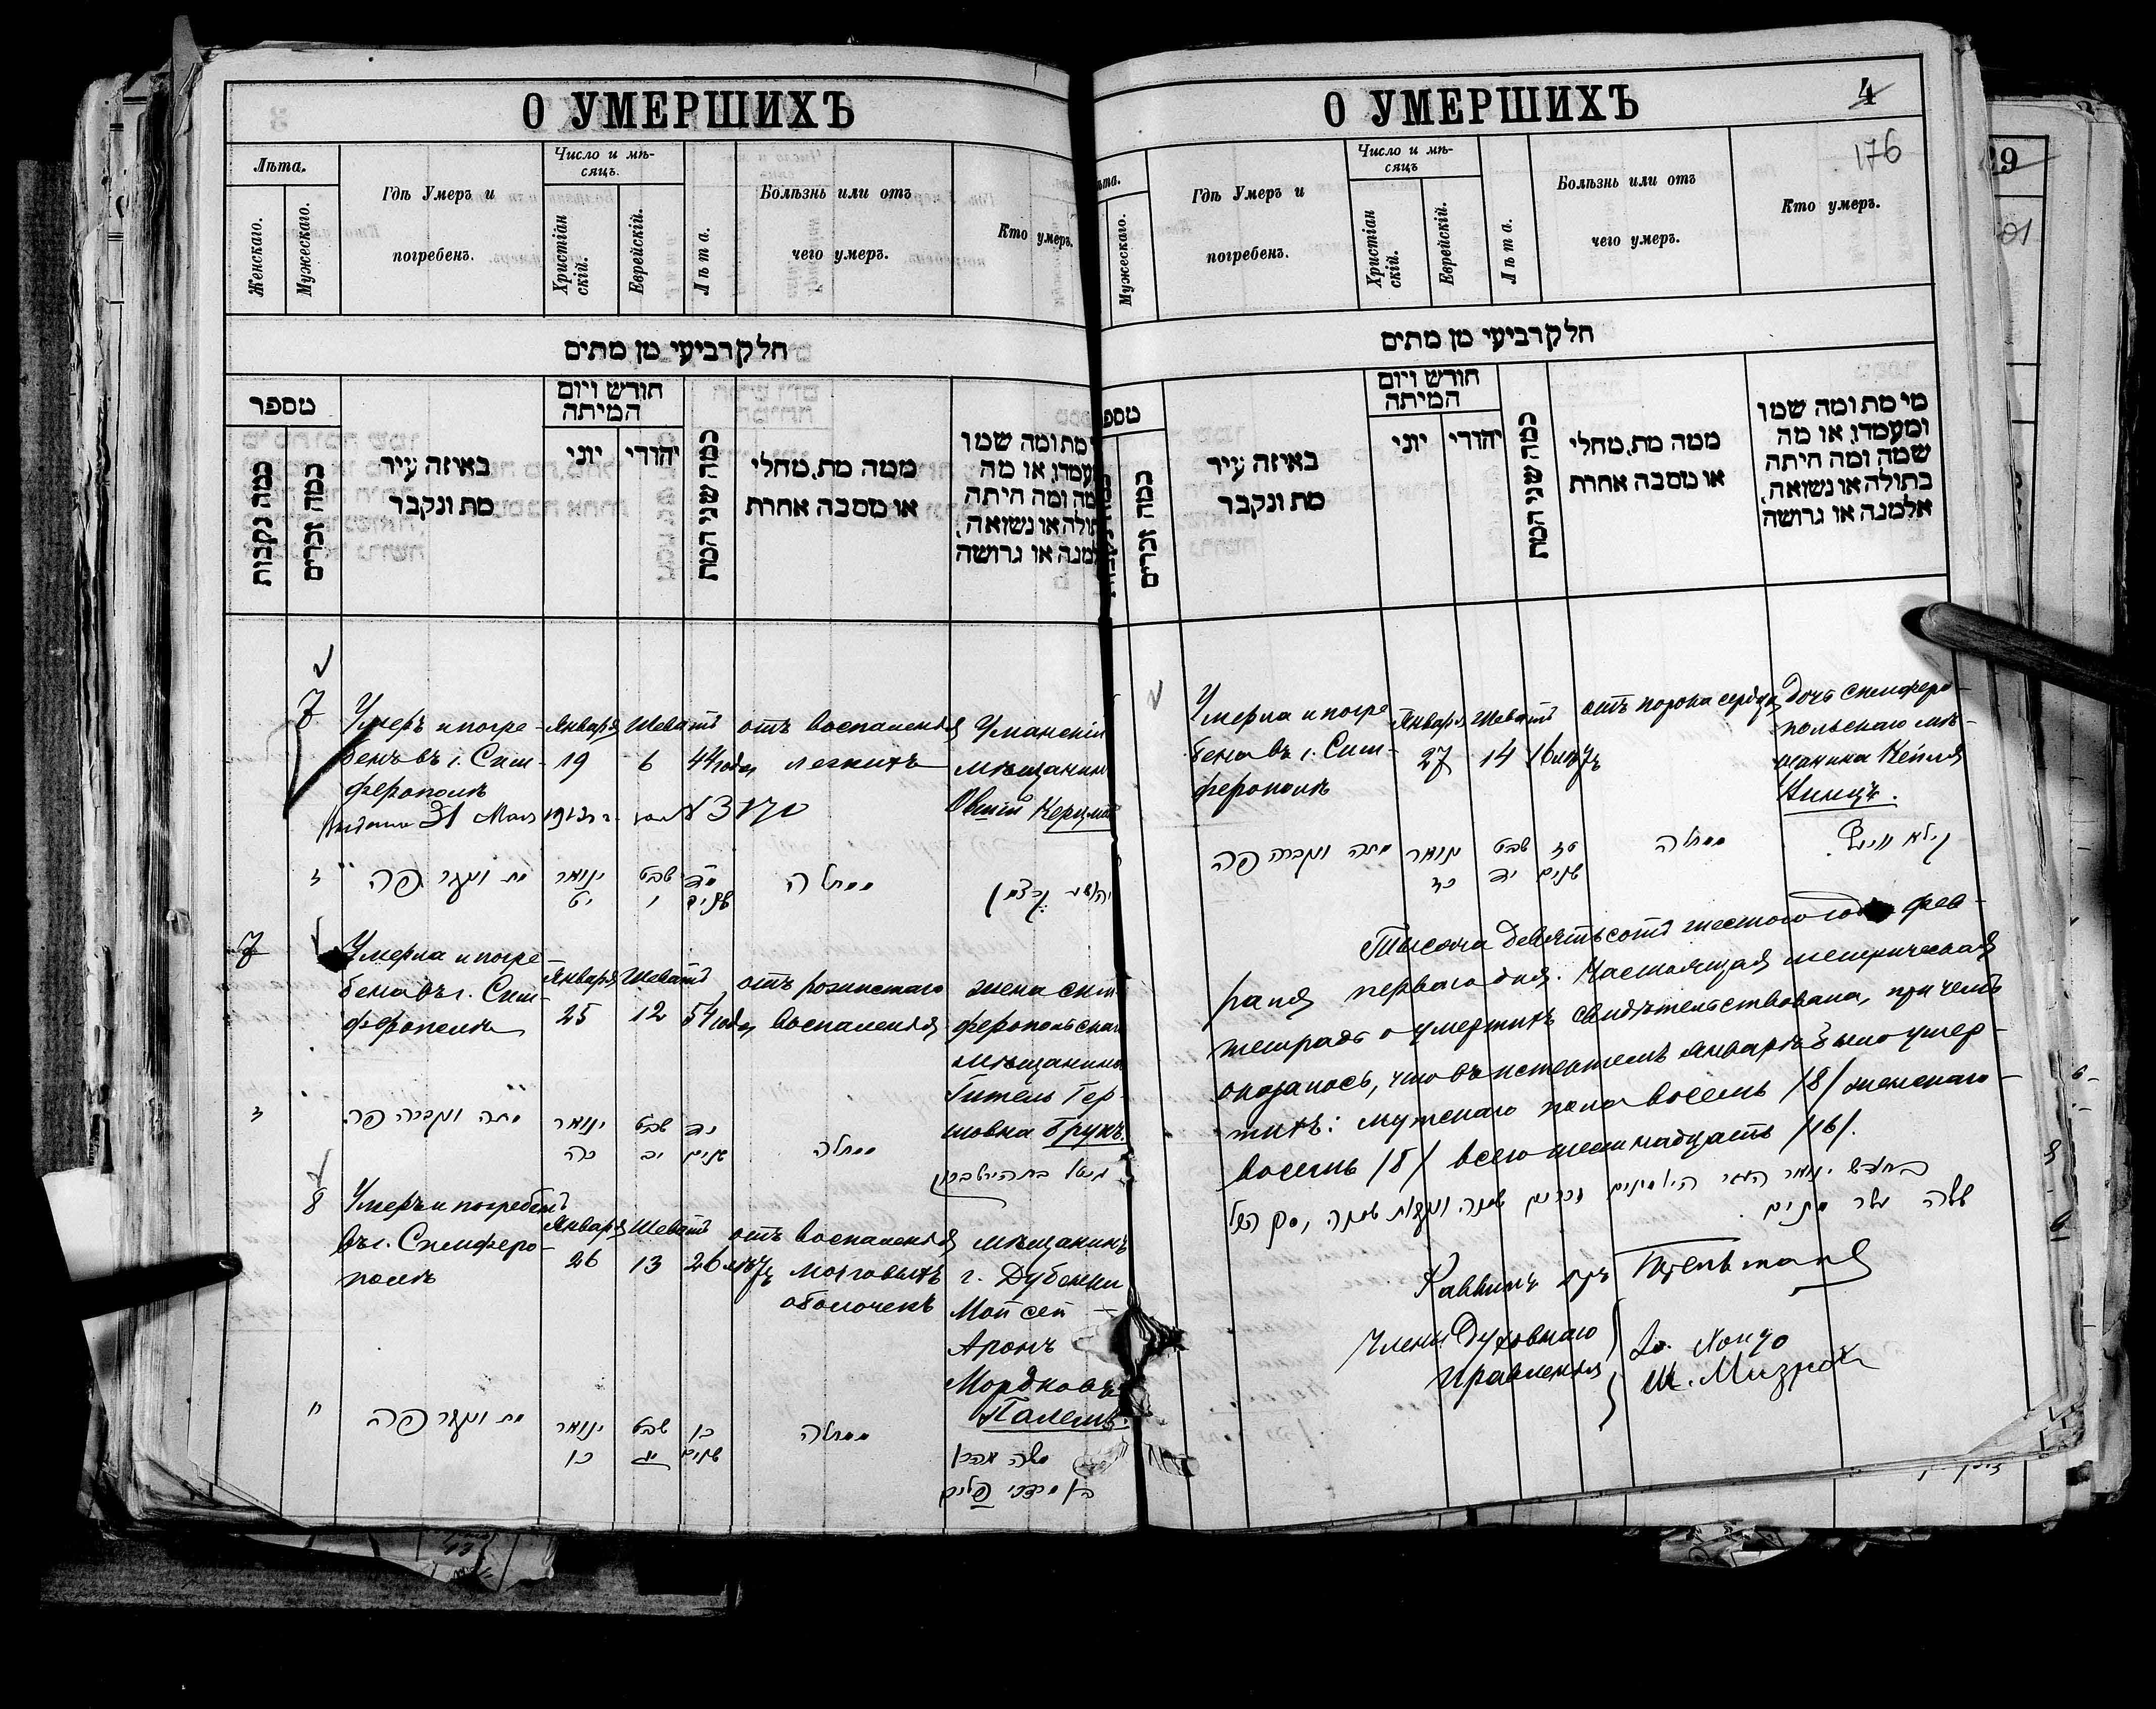 О УМЕРШИХЪ
Лѣта.
Женскаго.
Мужескаго.
Гдѣ Умеръ и
погребенъ.
Число и мѣ-
сяцъ.
Христіан
скій.
Еврейскій.
Лѣта.
Болѣзнь или отъ
чего умеръ.
Кто умеръ.
חלק רביעי מן מתים
מספר
כמה נקבות
כמה זכרים
באיזה עיר
מת ונקבר
חודש ויום
המיתה
יוני
יהודי
כמה שני המת
ממה מת, מחלי
או מסבה אחרת
מת ומה שמו
עמדו, או מה
מה ומה היתה
תולה או נשואה,
מנה או גרושה
7
Умеръ и погре-
бенъ въ г. Сим-
ферополѣ
Января
19
Шеватъ
6
44 года
отъ воспаленія
легкихъ
Уманскій
мѣщанинъ
Овшій Керцман
31 Мая 1913 г.
ז
מת ונקבר פה
ינואר
יט
שבט
ו
מד
שנים
ממחלה
7
Умерла и погре-
бена въ г. Сим-
ферополѣ
Января
25
Шеватъ
12
54 года
отъ рожистаго
воспаленія
жена сим-
феропольскаго
мѣщанина
Гитель Гер-
шовна Брукъ.
ז
מתה ונקברה פה
ינואר
כה
שבט
יב
נד
שנים
ממחלה
8
Умеръ и погребенъ
въ г. Симферо-
полѣ
Января
26
Шеватъ
13
26 лѣтъ
отъ воспаленія
мозговыхъ
оболочекъ
мѣщанинъ
г. Дубенки
Мойсей
Аронъ
Мордковъ
Палемъ.
ח
מת ונקבר פה
ינואר
כו
שבט
יג
כו
שנים
ממחלה
משה אהרן
בן מרדכי פלים
О УМЕРШИХЪ
4
176
Мужескаго.
Гдѣ Умеръ и
погребенъ.
Число и мѣ-
сяцъ
Христіан
скій.
Еврейскій.
Лѣта.
Болѣзнь или отъ
чего умеръ.
Кто умеръ.
חלק רביעי מן מתים
מספ
כמה זכרים
באיזה עיר
מת ונקבר
חודש ויום
המיתה
יוני
יהודי
כמה שני המת
ממה מת, מחלי
או מסבה אחרת
מי מת ומה שמו
ומעמדו, או מה
שמה ומה היתה
בתולה או נשואה,
אלמנה או גרושה
Умерла и погре
бена въ г. Сим-
ферополѣ
Января
27
Шеватъ
14
16 лѣтъ
отъ порока сердца
дочь симферо-
польскаго мѣ-
щанина Кейля
Винцъ.
מתה ונקברה פה
ינואר
כז
שבט
יד
טז
שנים
ממחלה
Тысяча девятьсотъ шестого года фев-
раля перваго дня. Настоящая метрическая
тетрадь о умершихъ свидѣтельствована, при чемъ
оказалось, что въ истекшемъ Январѣ было умер-
шихъ: мужскаго пола восемь /8/ женскаго
восемь /8/ всего шестнадцать /16/.
ששה עשר מתים
Раввинъ
Члены Духовнаго
Правленія
Ш. Мизрахи
29